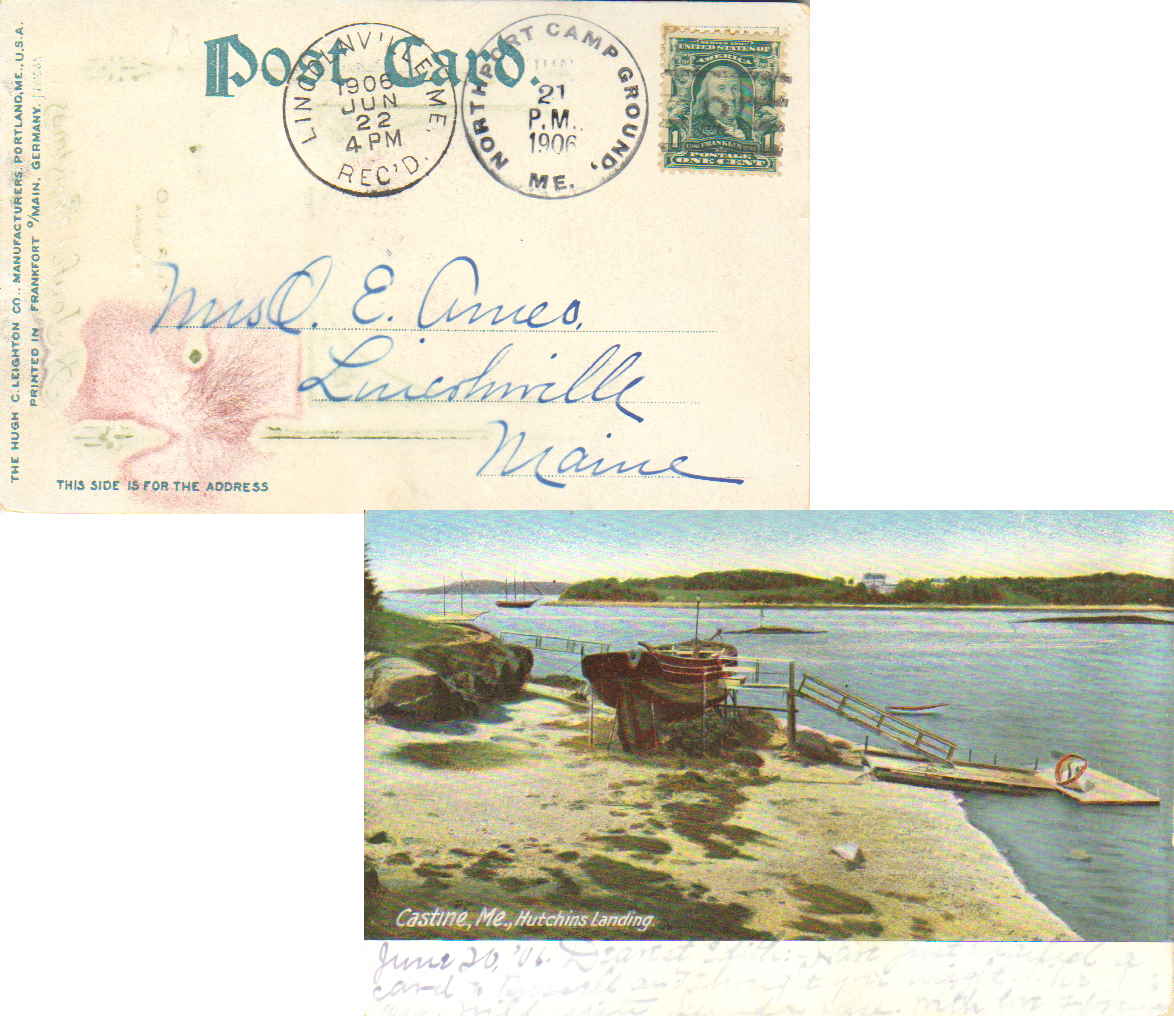 THE HUGH C. LEIGHTON CO., MANUFACTURERS, PORTLAND, ME., U.S.A.
PRINTED IN FRANKFORT O/MAIN, GERMANY.
Post Card.
LINCOLNVILLE, ME.
1906
JUN
22
4 PM
REC'D.
NORTHPORT CAMP GROUND,
21
P.M.
1906
ME.
UNITED STATES OF
AMERICA
1 FRANKLIN 1
POSTAGE
ONE CENT
Mrs O. E. Ames,
Lincolnville
Maine
THIS SIDE IS FOR THE ADDRESS
Castine, Me., Hutchins Landing
June 20, '06. Dearest
card